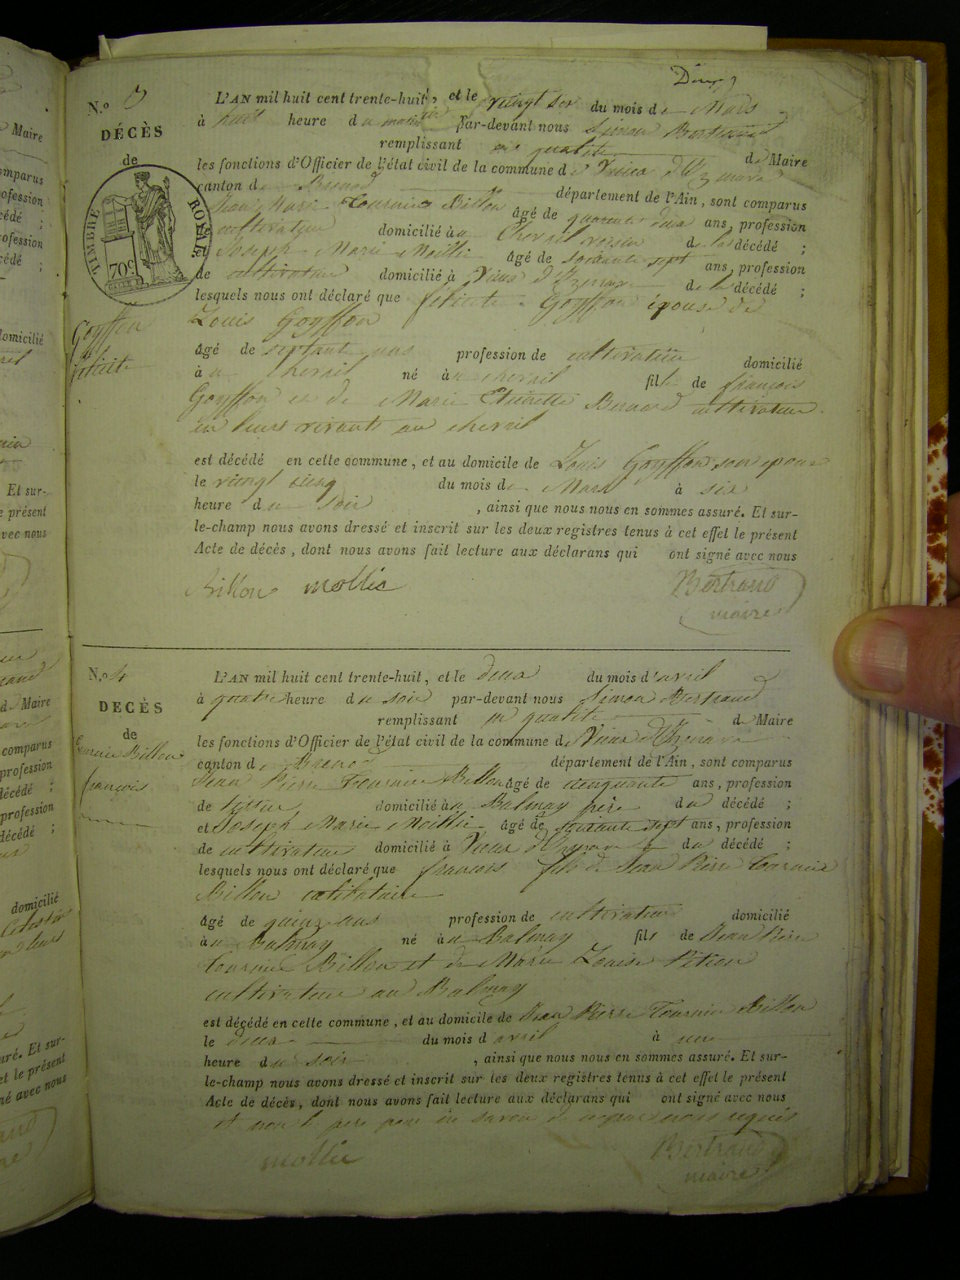 Deux
N.° 3
DÉCÈS
de
TIMBRE ROYAL
70c
Goyffon
félicité
L'AN mil huit cent trente-huit, et le vingt six du mois de Mars
à huit heure du matin par-devant nous Simon Bertrand
remplissant en qualité de Maire
les fonctions d'Officier de l'état civil de la commune de Vieux d'Izenave
canton de Brenod département de l'Ain, sont comparus
Jean Marie Tournier Billon âgé de quarante deux ans, profession
cultivateur domicilié au Chevril voisin de la décédé ;
et Joseph Marie Mollie âgé de soixante sept ans, profession
de cultivateur domicilié à Vieux d'Izenave de la décédé ;
lesquels nous ont déclaré que félicité Goyffon épouse de
Louis Goyffon
âgé de septante ans profession de cultivatrice domicilié
à u chevril né à u chevril fille de françois
Goyffon et de Marie Bernard cultivateur
en leurs vivants au chevril
est décédé en cette commune, et au domicile de Louis Goyffon son époux
le vingt cinq du mois de Mars à six
heure du soir, ainsi que nous nous en sommes assuré. Et sur-
le-champ nous avons dressé et inscrit sur les deux registres tenus à cet effet le présent
Acte de décès, dont nous avons fait lecture aux déclarans qui ont signé avec nous
Billon mollie Bertrand
maire
N.° 4
DECÈS
de
Tournier Billon
françois
L'AN mil huit cent trente-huit, et le deux du mois d'avril
à quatre heure du soir par-devant nous Simon Bertrand
remplissant en qualité de Maire
les fonctions d'Officier de l'état civil de la commune de Vieux d'Izenave
canton de Brenod département de l'Ain, sont comparus
Jean Pierre Tournier Billon âgé de cinquante ans, profession
de domicilié au Balmay père du décédé ;
et Joseph Marie Mollie âgé de soixante sept ans, profession
de cultivateur domicilié à Vieux d'Izenave du décédé ;
lesquels nous ont déclaré que françois fils de Jean Pierre Tournier
Billon célibataire
âgé de quinze ans profession de cultivateur domicilié
à u Balmay né à u Balmay fils de Jean Pierre
Tournier Billon et de Marie Louise
cultivateur au Balmay
est décédé en cette commune, et au domicile de Jean Pierre Tournier Billon
le deux du mois d avril à une
heure du soir, ainsi que nous nous en sommes assuré. Et sur-
le-champ nous avons dressé et inscrit sur les deux registres tenus à cet effet le présent
Acte de décès, dont nous avons fait lecture aux déclarans qui ont signé avec nous
et non le père pour ne savoir de ce par nous requis
mollie Bertrand
maire